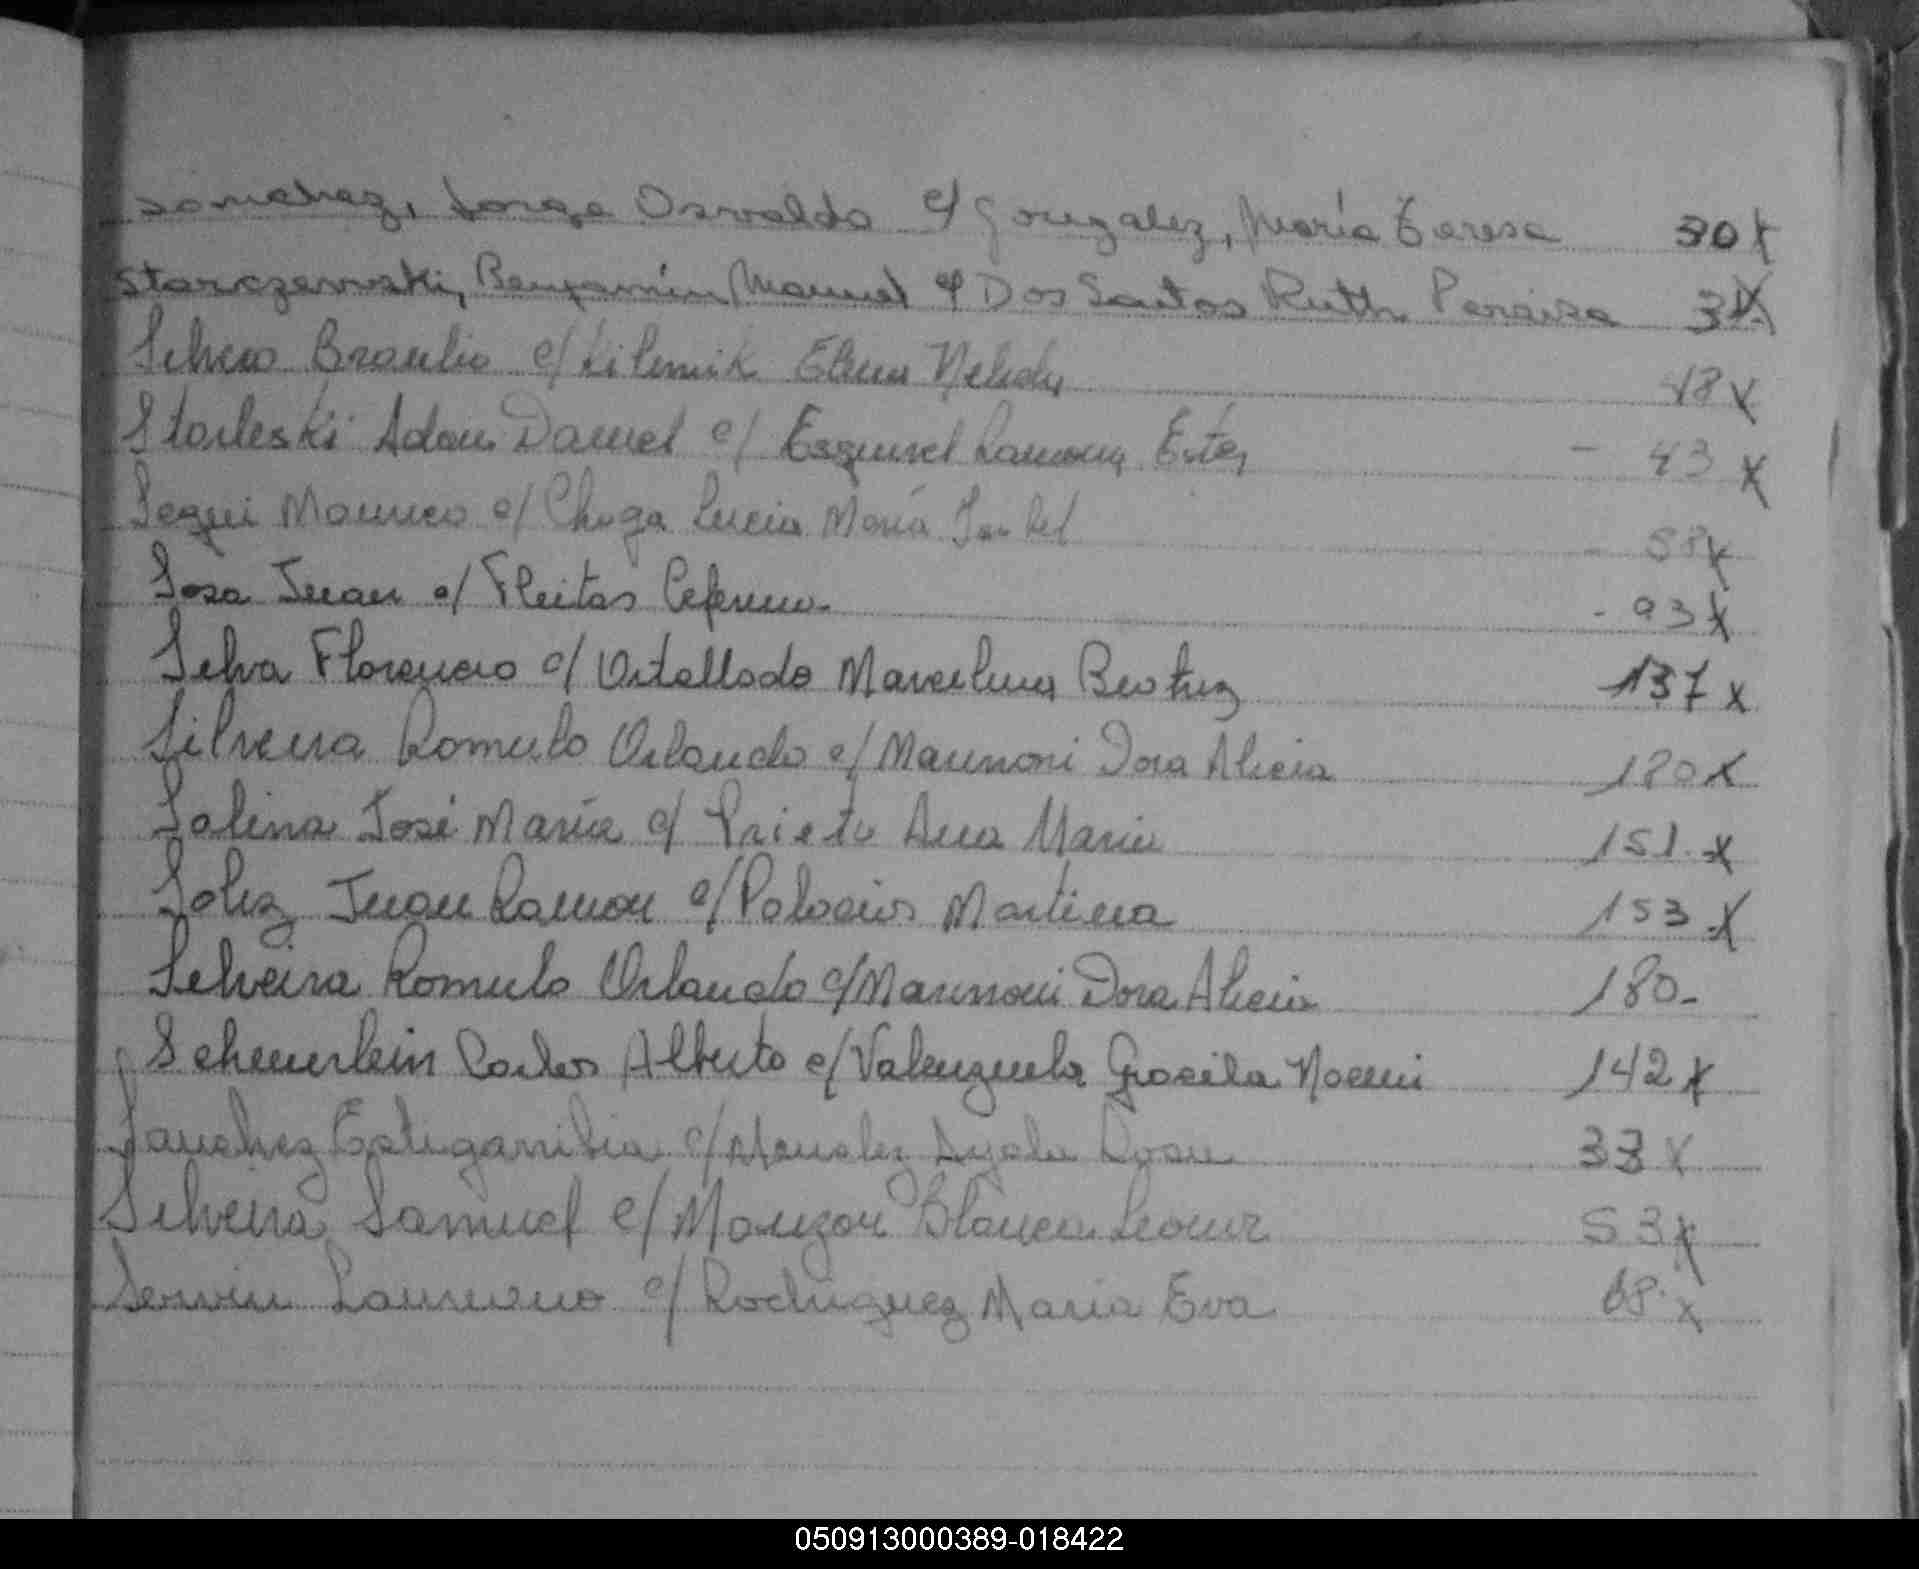 Sanchez, Jorge Osvaldo c/ Gonzalez, María Teresa 30 x
Starczewski, Benjamín Manuel c/ Dos Santos Ruth Pereira 3
Silva Braulio c/ Elena Nelida 48 x
Adan Daniel c/ Esquivel Ramona Ester - 43 x
Segui Mauricio c/ Lucia María Isabel 58 x
Sosa Juan c/ Fleitas - 93 x
Silva Florencio c/ Marcelina Beatriz 137 x
Silveira Romulo Orlando c/ Marinoni Dora Alicia 180 x
Salina José María c/ Prieto Ana Maria 151 x
Solis Juan Ramon c/ Palacios Martina 153 x
Silveira Romulo Orlando c/ Marinoni Dora Alicia 180-
Carlos Alberto c/ Valenzuela Graciela Noemi 142 x
Sanchez c/ Rosa 33 x
Silveira Samuel c/ Blanca Leonor 53 x
Servin c/ Rodriguez Maria Eva 68 x
050913000389-018422